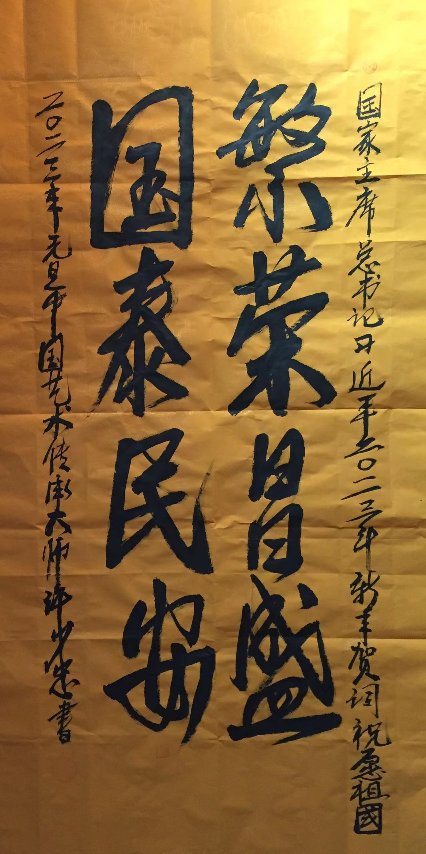 国家主席总书记习近平二〇二三年新年贺词祝愿祖國
繁荣昌盛
国泰民安
二〇二三年元旦中国艺术传承大师许少忠書